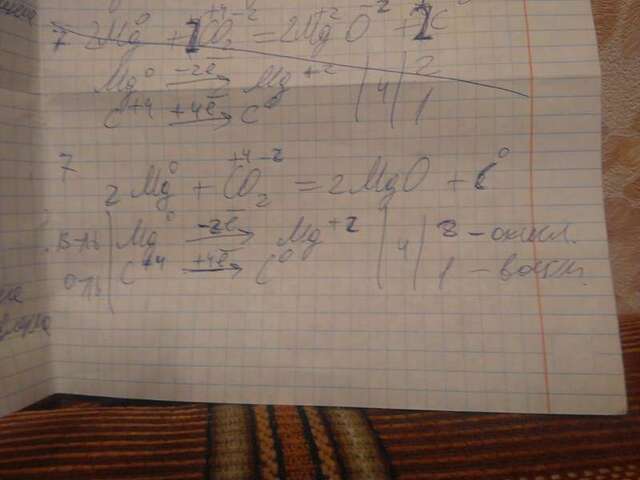 7 2Mg⁰ + 1C⁺⁴O₂⁻² = 2Mg⁺²O⁻² + 1C⁰
Mg⁰ –2e̅→ Mg⁺² | 4 | 2
C⁺⁴ +4e̅→ C⁰ | 1
7
2Mg⁰ + C⁺⁴O₂⁻² = 2MgO + C⁰
в-ль | Mg⁰ –2e̅→ Mg⁺² | 4 | 2 – окисл.
о-ль | C⁺⁴ +4e̅→ C⁰ | 1 – восст.